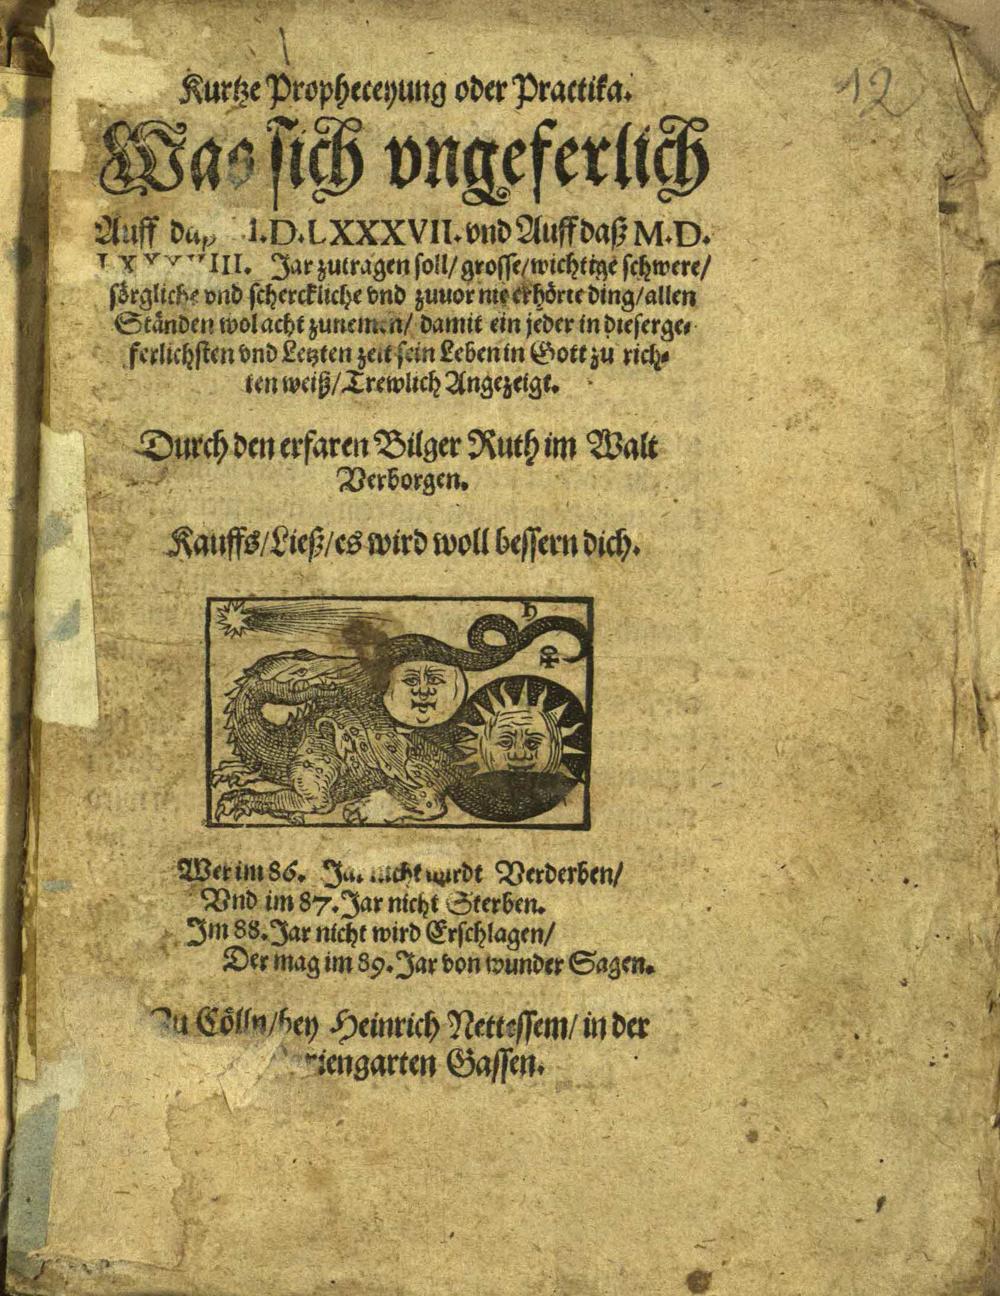 12
Kurtze Propheceyung oder Practika.
Was sich vngeferlich
Auff daß .D.LXXXVII. vnd Auff daß M.D.
III. Jar zutragen soll/ grosse/ wichtige schwere/
sörgliche vnd scherckliche vnd zuuor nie erhörte ding/ allen
Ständen wol acht zunemen/ damit ein jeder in dieser ge⸗
ferlichsten vnd Letzten zeit sein Leben in Gott zu rich⸗
ten weiß/ Trewlich Angezeigt.
Durch den erfaren Bilger Ruth im Walt
Verborgen.
Kauffs/ Ließ/ es wird woll bessern dich.
♄
♀
Wer im 86. Jar nicht wirdt Verderben/
Vnd im 87. Jar nicht Sterben.
Im 88. Jar nicht wird Erschlagen/
Der mag im 89. Jar von wunder Sagen.
Zu Cölln/ bey Heinrich Nettessem/ in der
riengarten Gassen.